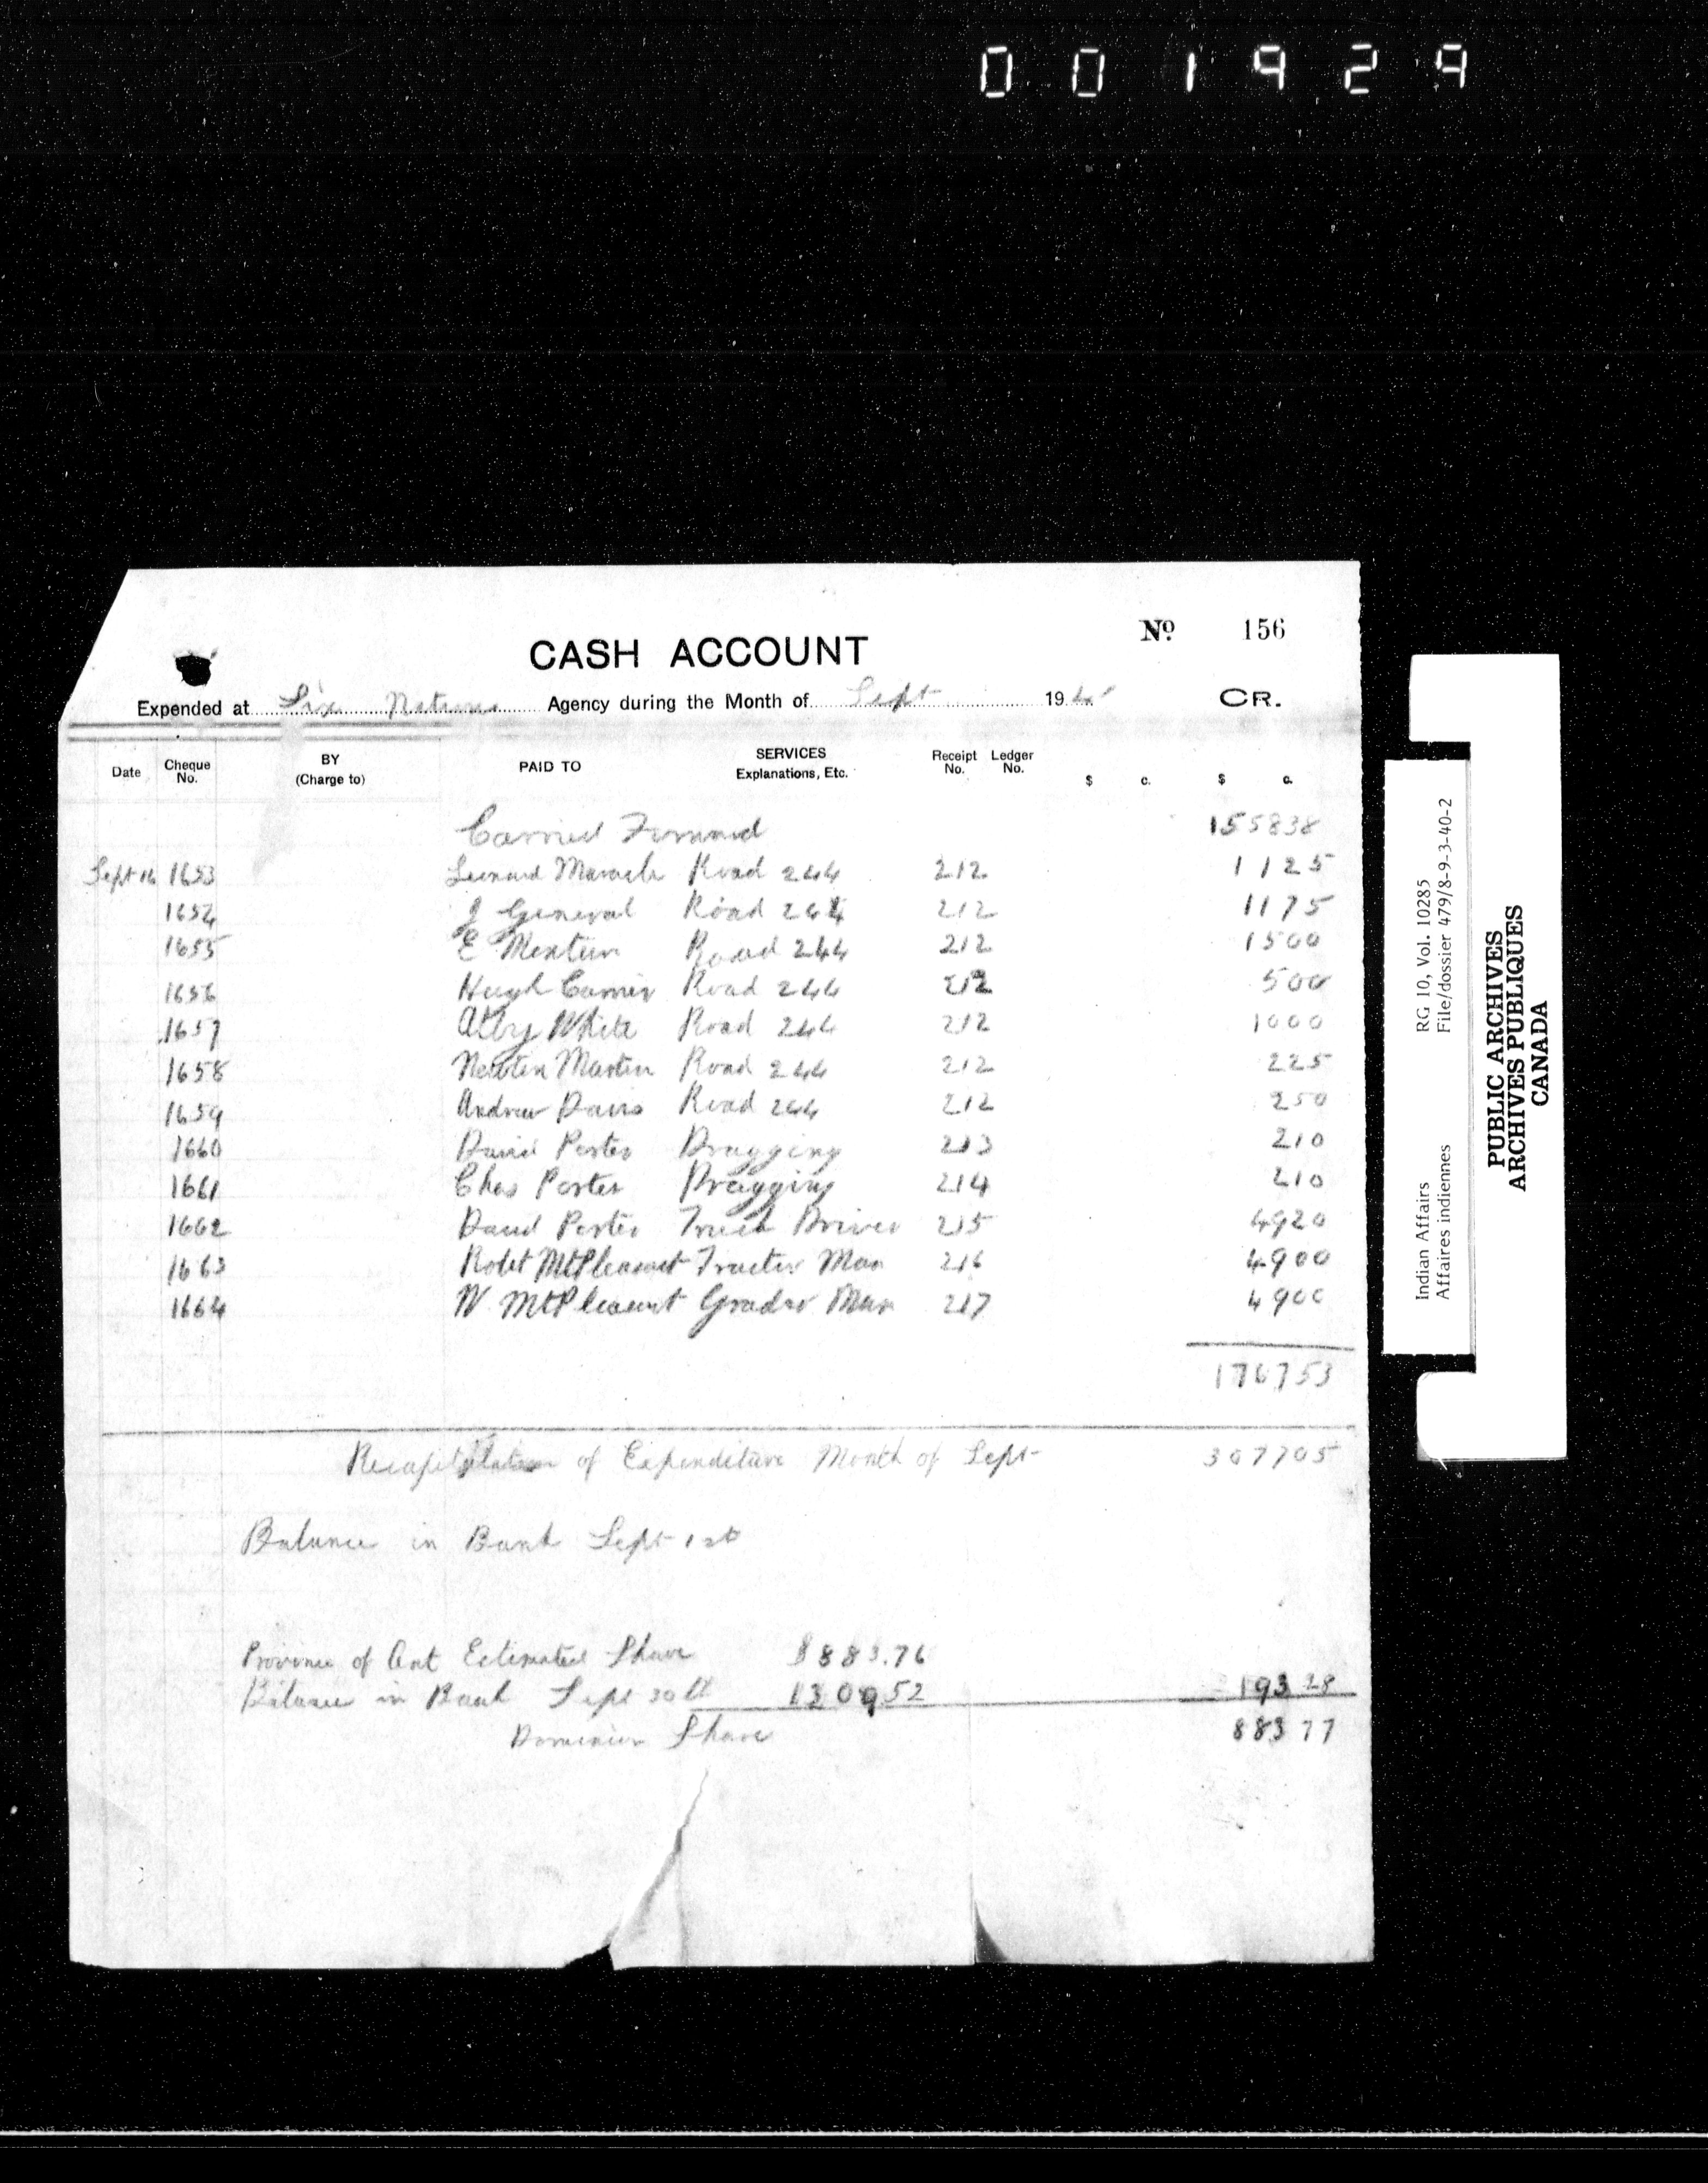 001929
No 156
CASH ACCOUNT
Expended at Six Nations Agency during the Month of Sept 194 CR.
Date Cheque No. BY (Charge to) PAID TO SERVICES Explanations, Etc. Receipt No. Ledger No. $ c. $ c.
Carried Forward 155838
Sept 16 1653 Leonard Maracle Road 244 212 1125
1654 J General Road 244 212 1175
1655 E Road 244 212 1500
1656 Hugh Road 244 212 500
1657 White Road 244 212 1000
1658 Newton Martin Road 244 212 225
1659 Andrew Davis Road 244 212 250
1660 David Porter Dragging 213 210
1661 Chas Porter Dragging 214 210
1662 David Porter Truck Driver 215 4920
1663 Robt MtPleasant Tractor Man 216 4900
1664 W MtPleasant Grader Man 217 4900
176753
Recapitulation of Expenditure Month of Sept 307705
Balance in Bank Sept 1st
Province of Ont Estimated Share $883.76
Balance in Bank Sept 30th 130952 19328
Dominion Share 88377
Indian Affairs RG 10, Vol. 10285
Affaires indiennes File/dossier 479/8-9-3-40-2
PUBLIC ARCHIVES
ARCHIVES PUBLIQUES
CANADA